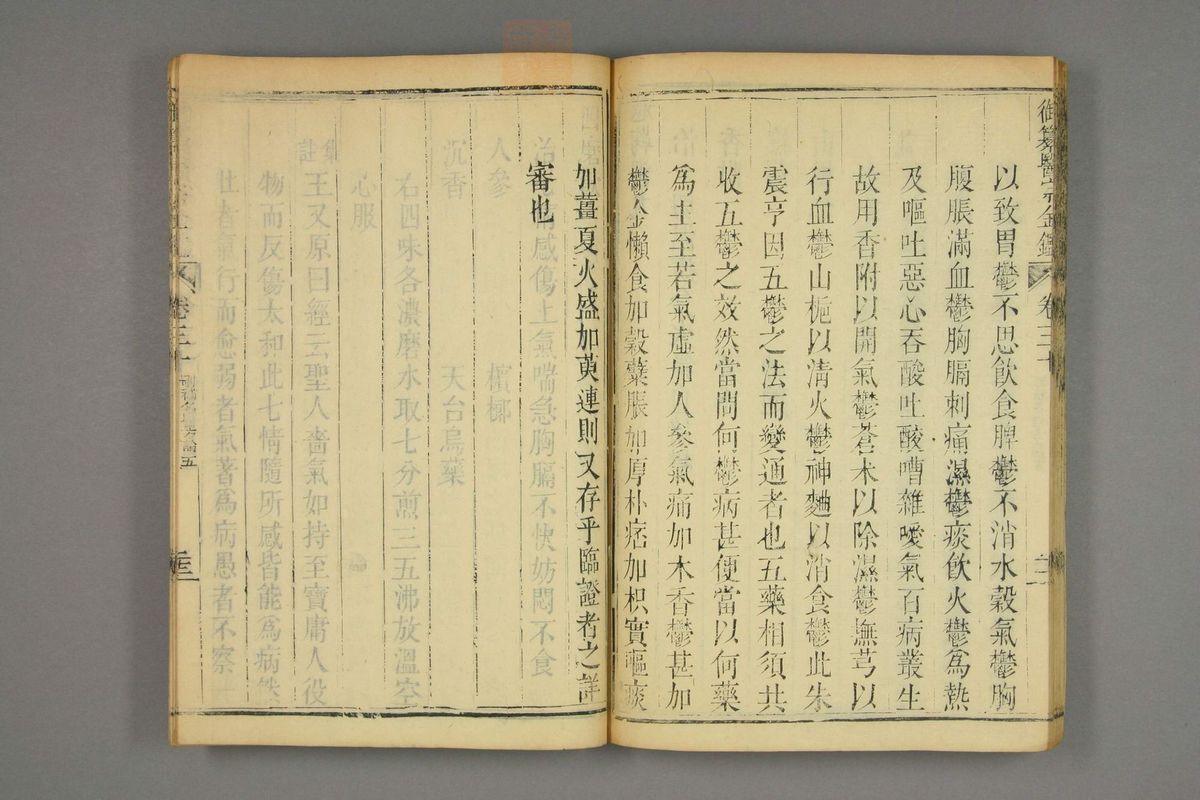 御纂醫宗金鑑 卷三十
以致胃鬱不思飲食脾鬱不消水穀氣鬱胸
腹脹滿血鬱胸膈刺痛濕鬱痰飲火鬱為熱
及嘔吐惡心吞酸吐酸嘈雜噯氣百病叢生
故用香附以開氣鬱蒼朮以除濕鬱撫芎以
行血鬱山梔以清火鬱神麯以消食鬱此朱
震亨因五鬱之法而變通者也五藥相須共
收五鬱之效然當問何鬱病甚便當以何藥
為主至若氣虛加人參氣痛加木香鬱甚加
鬱金懶食加穀蘗脹加厚朴痞加枳實嘔痰
如薑夏火盛加萸連則又存乎臨證者之詳
審也
治 感傷上氣喘急胸膈不快妨悶不食
人參 檳榔
沉香 天台烏藥
右四味各濃磨水取七分煎三五沸放溫空
心服
集註 王又原曰經云聖人嗇氣如持至寶庸人役
物而反傷太和此七情隨所感皆能為病然
壯者氣行而愈弱者氣著為病愚者不察
卷三十 刪補名醫方論五